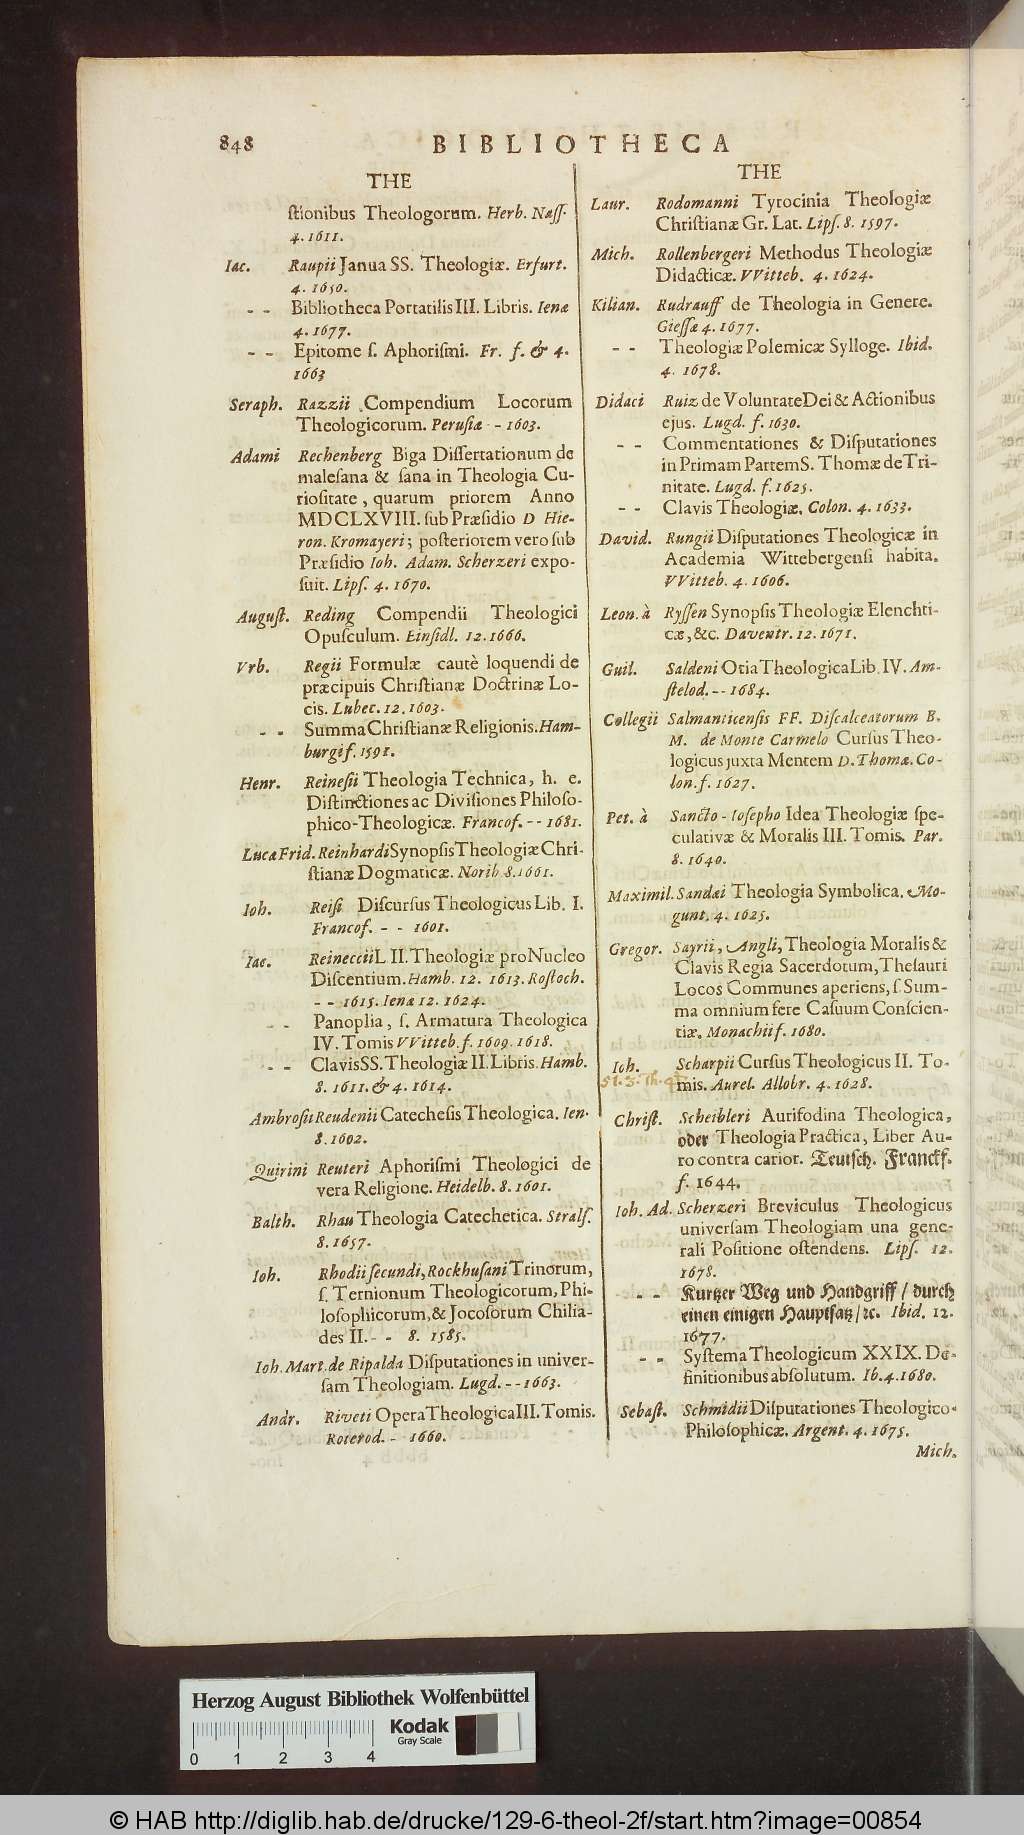 848 BIBLIOTHECA
THE
ſtionibus Theologorum. Herb. Naſſ.
4. 1611.
Iac. Raupii Janua SS. Theologiæ. Erfurt.
4. 1650.
- - Bibliotheca Portatilis III. Libris. Ienæ
4. 1677.
- - Epitome ſ. Aphoriſmi. Fr. f. & 4.
1663
Seraph. Razzii Compendium Locorum
Theologicorum. Peruſiæ - - 1603.
Adami Rechenberg Biga Diſſertationum de
maleſana & ſana in Theologia Cu-
rioſitate, quarum priorem Anno
MDCLXVIII. ſub Præſidio D Hie-
ron. Kromayeri; poſteriorem vero ſub
Præſidio Ioh. Adam. Scherzeri expo-
ſuit. Lipſ. 4. 1670.
Auguſt. Reding Compendii Theologici
Opuſculum. Einſidl. 12. 1666.
Vrb. Regii Formulæ cautè loquendi de
præcipuis Chriſtianæ Doctrinæ Lo-
cis. Lubec. 12. 1603.
- - Summa Chriſtianæ Religionis. Ham-
burgi f. 1591.
Henr. Reineſii Theologia Technica, h. e.
Diſtinctiones ac Diviſiones Philoſo-
phico-Theologicæ. Francof. - - 1681.
Lucæ Frid. Reinhardi Synopſis Theologiæ Chri-
ſtianæ Dogmaticæ. Norib. 8. 1661.
Ioh. Reiſi Diſcurſus Theologicus Lib. I.
Francof. - - 1601.
Iac. Reineccii L II. Theologiæ pro Nucleo
Diſcentium. Hamb. 12. 1613. Roſtoch.
- - 1615. Ienæ 12. 1624.
- - Panoplia, ſ. Armatura Theologica
IV. Tomis VVitteb. f. 1609. 1618.
- - Clavis SS. Theologiæ II Libris. Hamb.
8. 1611. & 4. 1614.
Ambroſii Reudenii Catecheſis Theologica. Ien.
8. 1602.
Quirini Reuteri Aphoriſmi Theologici de
vera Religione. Heidelb. 8. 1601.
Balth. Rhau Theologia Catechetica. Stralſ.
8. 1657.
Ioh. Rhodii ſecundi, Rockhuſani Trinorum,
ſ. Ternionum Theologicorum, Phi-
loſophicorum, & Jocoſorum Chilia-
des II. - - 8. 1585.
Ioh. Mart. de Ripalda Diſputationes in univer-
ſam Theologiam. Lugd. - - 1663.
Andr. Riveti Opera Theologica III. Tomis.
Roterod. - 1660.
THE
Laur. Rodomanni Tyrocinia Theologiæ
Chriſtianæ Gr. Lat. Lipſ. 8. 1597.
Mich. Rollenbergeri Methodus Theologiæ
Didacticæ. VVitteb. 4. 1624.
Kilian. Rudrauff de Theologia in Genere.
Gieſſæ 4. 1677.
- - Theologiæ Polemicæ Sylloge. Ibid.
4. 1678.
Didaci Ruiz de Voluntate Dei & Actionibus
ejus. Lugd. f. 1630.
- - Commentationes & Diſputationes
in Primam Partem S. Thomæ de Tri-
nitate. Lugd. f. 1625.
- - Clavis Theologiæ. Colon. 4. 1633.
David. Rungii Diſputationes Theologicæ in
Academia Wittebergenſi habita.
VVitteb. 4. 1606.
Leon. à Ryſſen Synopſis Theologiæ Elenchti-
cæ, &c. Daventr. 12. 1671.
Guil. Saldeni Otia Theologica Lib. IV. Am-
ſtelod. - - 1684.
Collegii Salmanticenſis FF. Diſcalceatorum B.
M. de Monte Carmelo Curſus Theo-
logicus juxta Mentem D. Thomæ. Co-
lon. f. 1627.
Pet. à Sancto-Ioſepho Idea Theologiæ ſpe-
culativæ & Moralis III. Tomis. Par.
8. 1640.
Maximil. Sandæi Theologia Symbolica. Mo-
gunt. 4. 1625.
Gregor. Sayrii, Angli, Theologia Moralis &
Clavis Regia Sacerdotum, Theſauri
Locos Communes aperiens, ſ. Sum-
ma omnium fere Caſuum Conſcien-
tiæ. Monachii f. 1680.
Ioh. Scharpii Curſus Theologicus II. To-
mis. Aurel. Allobr. 4. 1628.
Chriſt. Scheibleri Aurifodina Theologica,
oder Theologia Practica, Liber Au-
ro contra carior. Teutſch. Franckf.
f. 1644.
Ioh. Ad. Scherzeri Breviculus Theologicus
univerſam Theologiam una gene-
rali Poſitione oſtendens. Lipſ. 12.
1678.
- - Kurtzer Weg und Handgriff / durch
einen einigen Hauptſatz / ꝛc. Ibid. 12.
1677.
- - Syſtema Theologicum XXIX. De-
finitionibus abſolutum. Ib. 4. 1680.
Sebaſt. Schmidii Diſputationes Theologico-
Philoſophicæ. Argent. 4. 1675.
Mich.
Herzog August Bibliothek Wolfenbüttel
Kodak
Gray Scale
0 1 2 3 4
© HAB http://diglib.hab.de/drucke/129-6-theol-2f/start.htm?image=00854